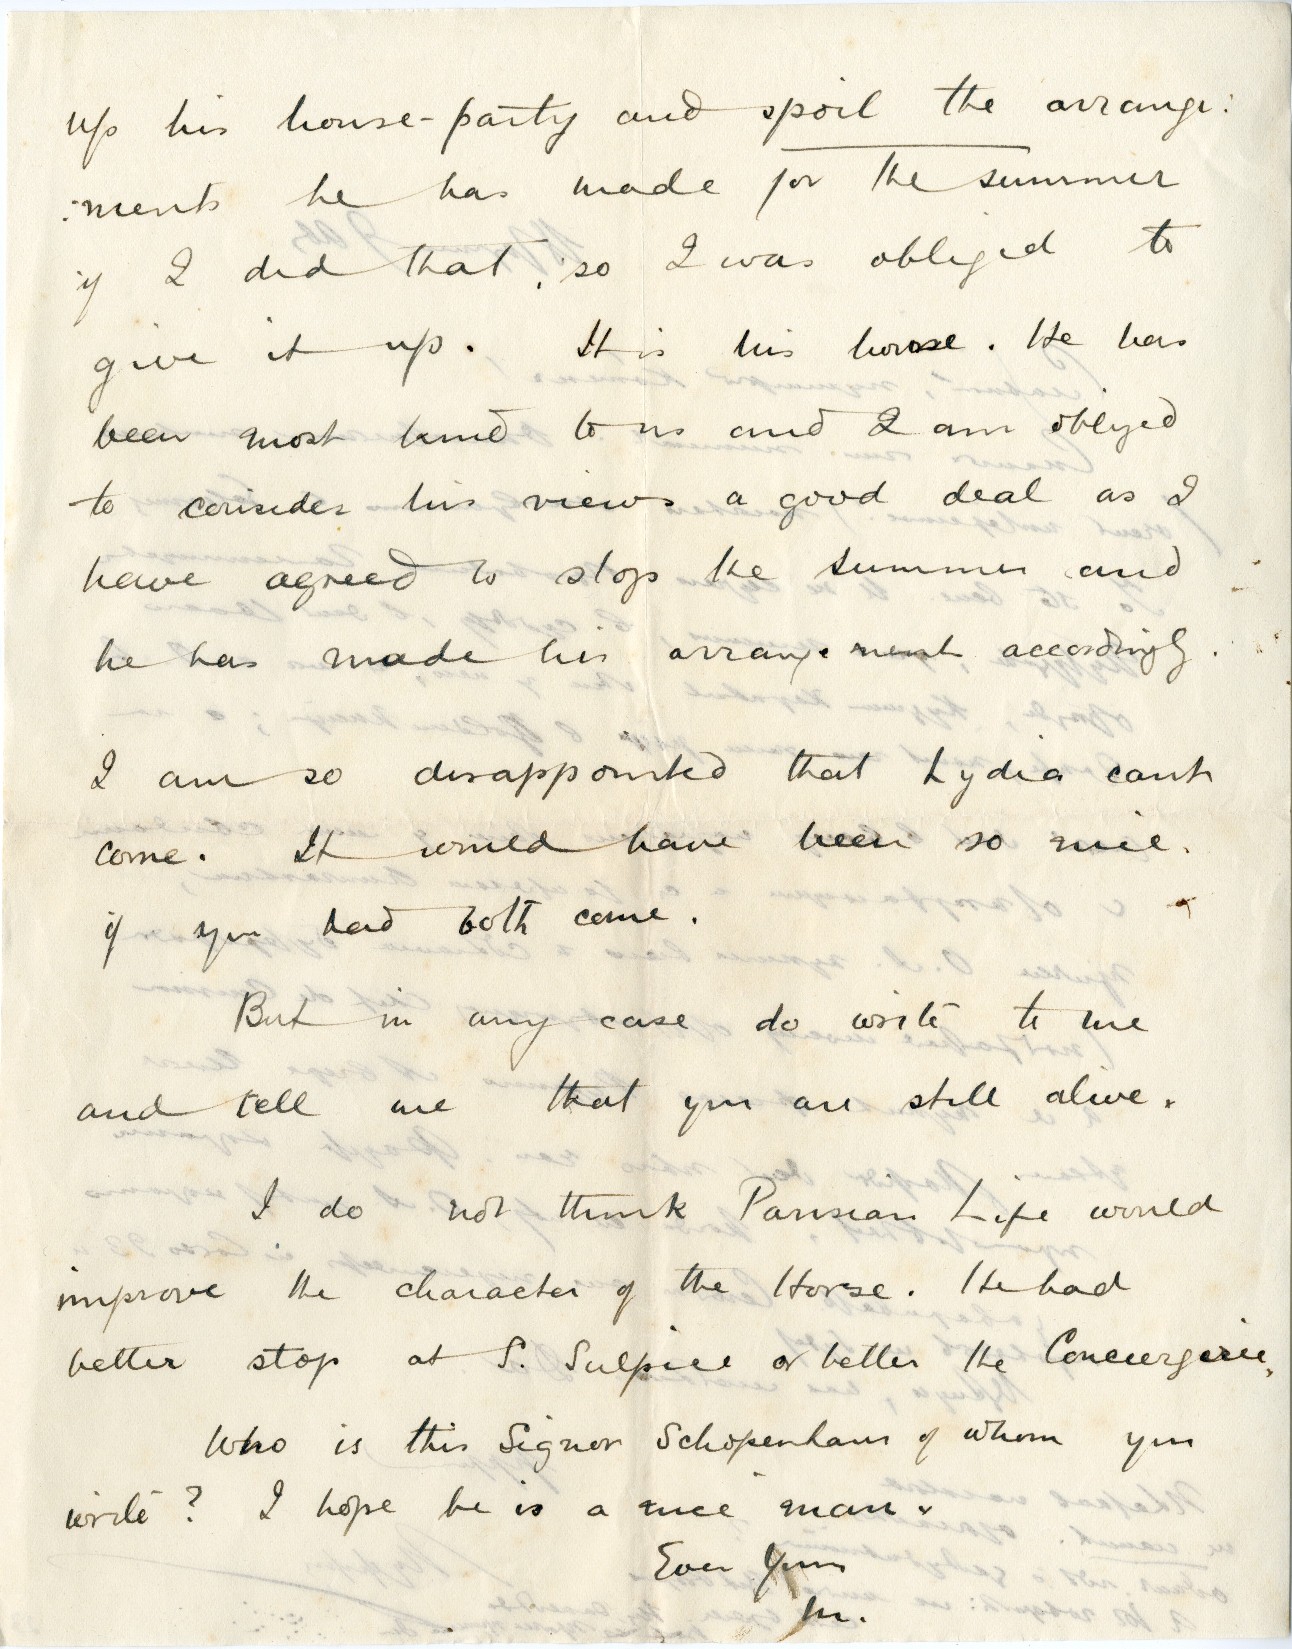 up his house-party and spoil the arrange:
:ments he has made for the summer
if I did that, so I was obliged to
give it up. It is his house. He has
been most kind to us and I am obliged
to consider his views a good deal as I
have agreed to stop the summer and
he has made his arrangements accordingly.
I am so disappointed that Lydia cant
come. It would have been so nice.
if you had both come.
But in any case do write to me
and tell me that you are still alive.
I do not think Parisian Life would
improve the character of the Horse. He had
better stop at S. Sulpice or better the Conciergerie.
Who is this Signor Schopenhaur of whom you
write? I hope he is a nice man.
Ever Yours
M.